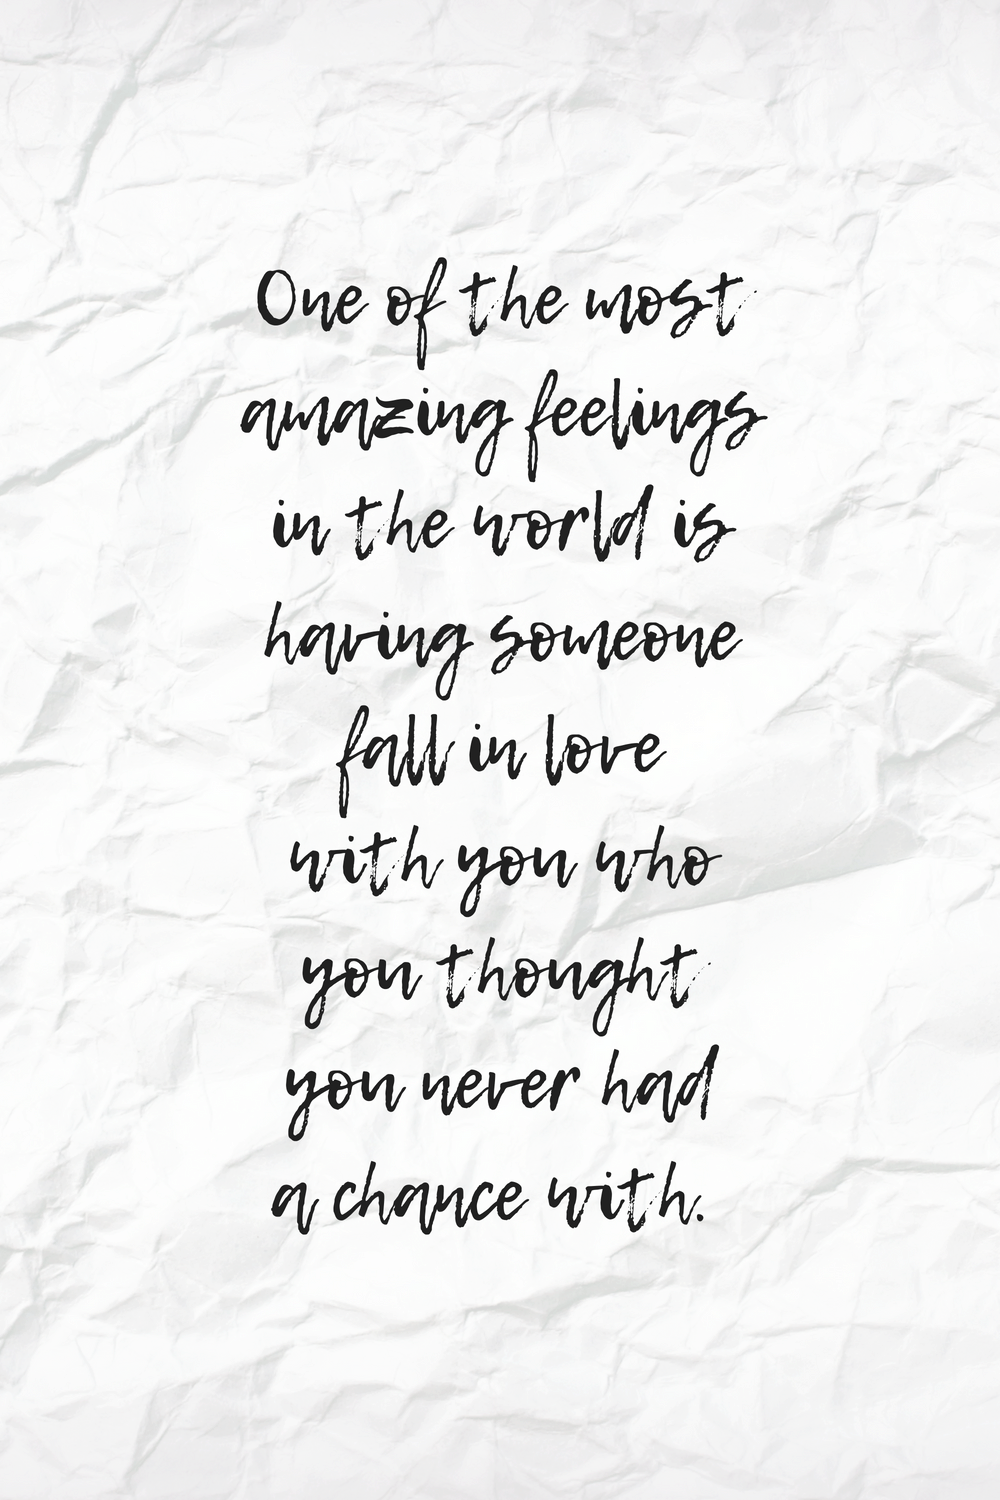 One of the most
amazing feelings
in the world is
having someone
fall in love
with you who
you thought
you never had
a chance with.